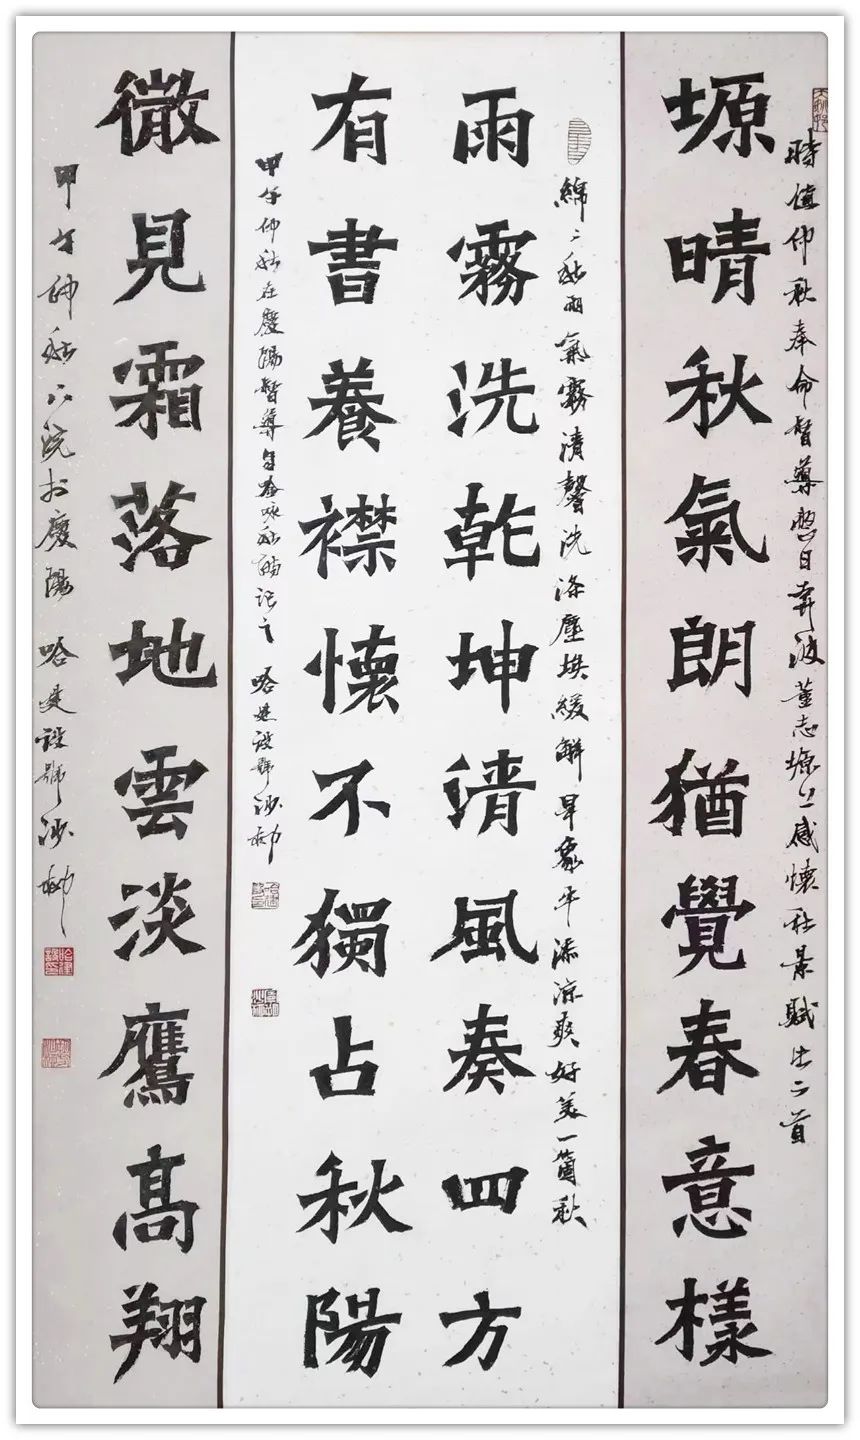 時值仲秋奉命督導整日奔波董志塬上感懷秋景賦出二首
塬晴秋氣朗猶覺春意樣
綿綿秋雨氣霧清馨洗滌塵埃緩解旱象平添涼爽好美一箇秋
雨霧洗乾坤清風奏四方
有書養襟懷不獨占秋陽
甲午仲秋在慶陽督導自吟咏秋韻記之 哈建設號沙柳
微見霜落地雲淡鷹高翔
甲午仲秋下浣於慶陽 哈建設號沙柳